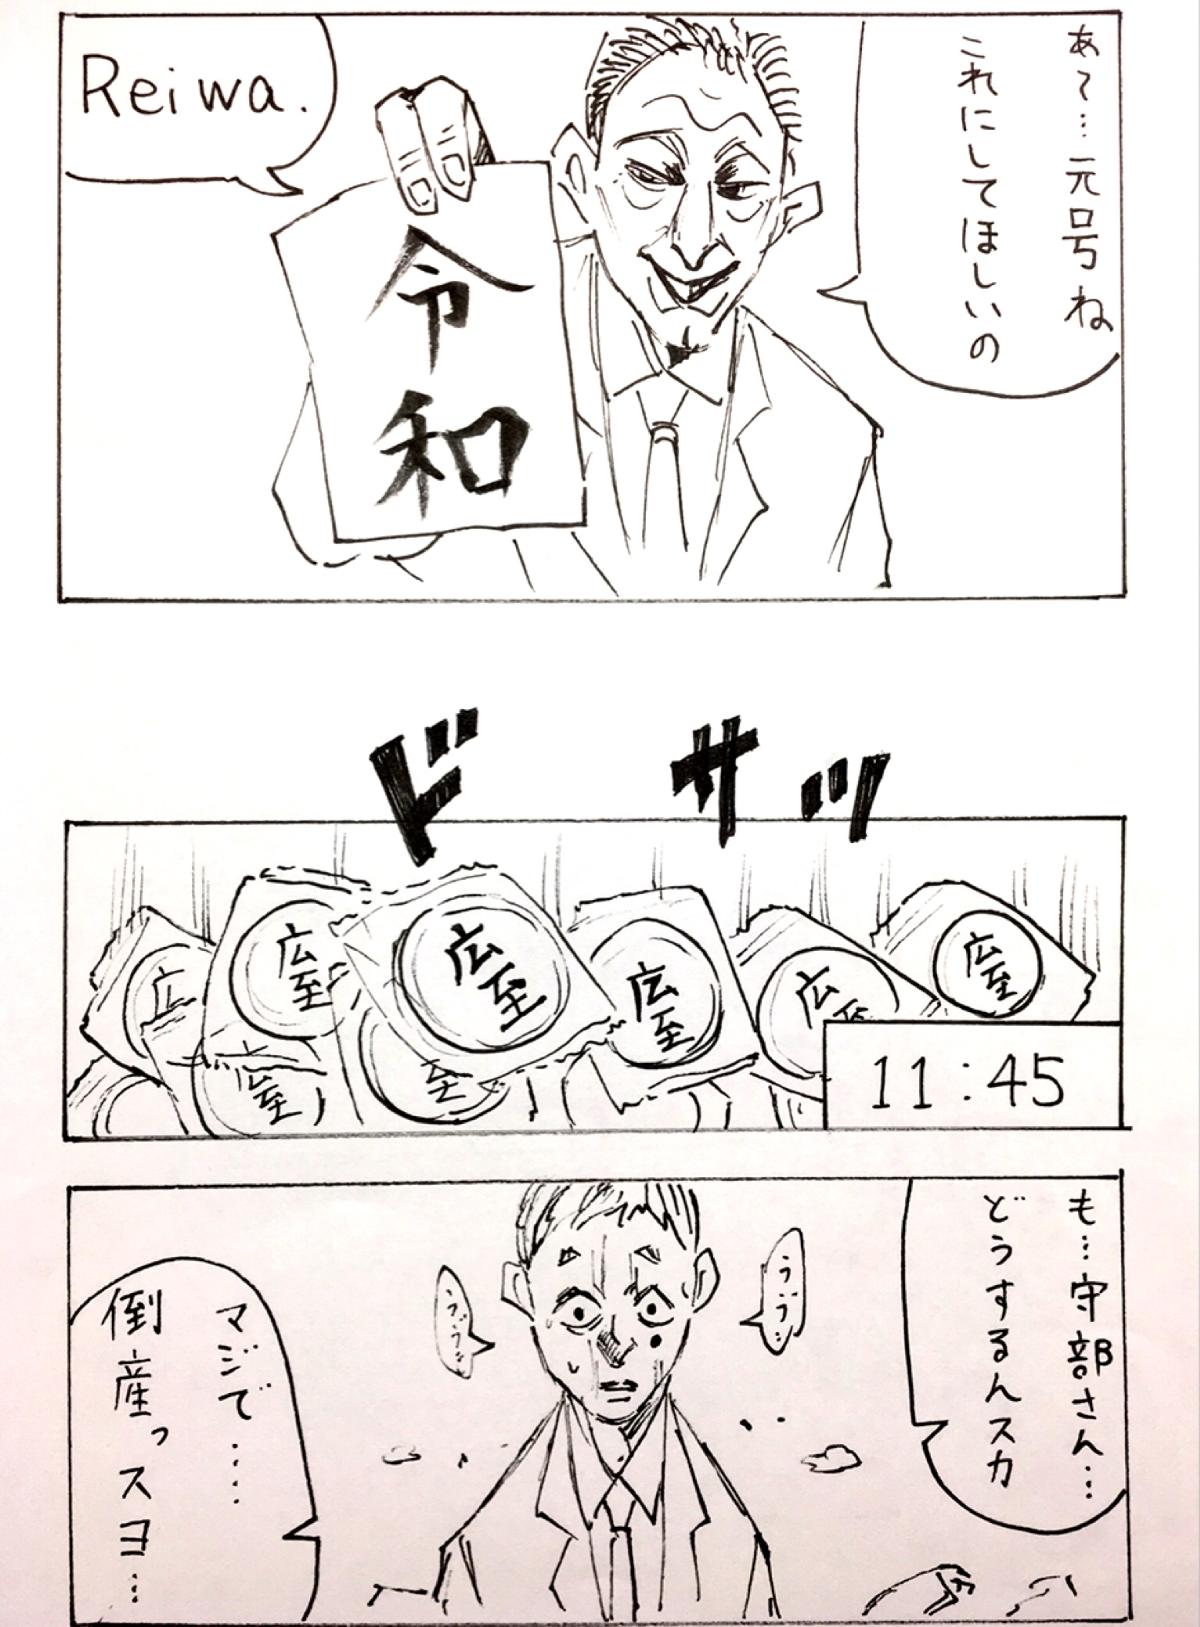 あ〜…元号ね
これにしてほしいの
Reiwa.
令和
ドサッ
広至
広至
広至
広至
広
広至
広
至
至
11:45
も…守部さん…
どうするんスカ
ううう…
ううう…
マジで……
倒産っスヨ…